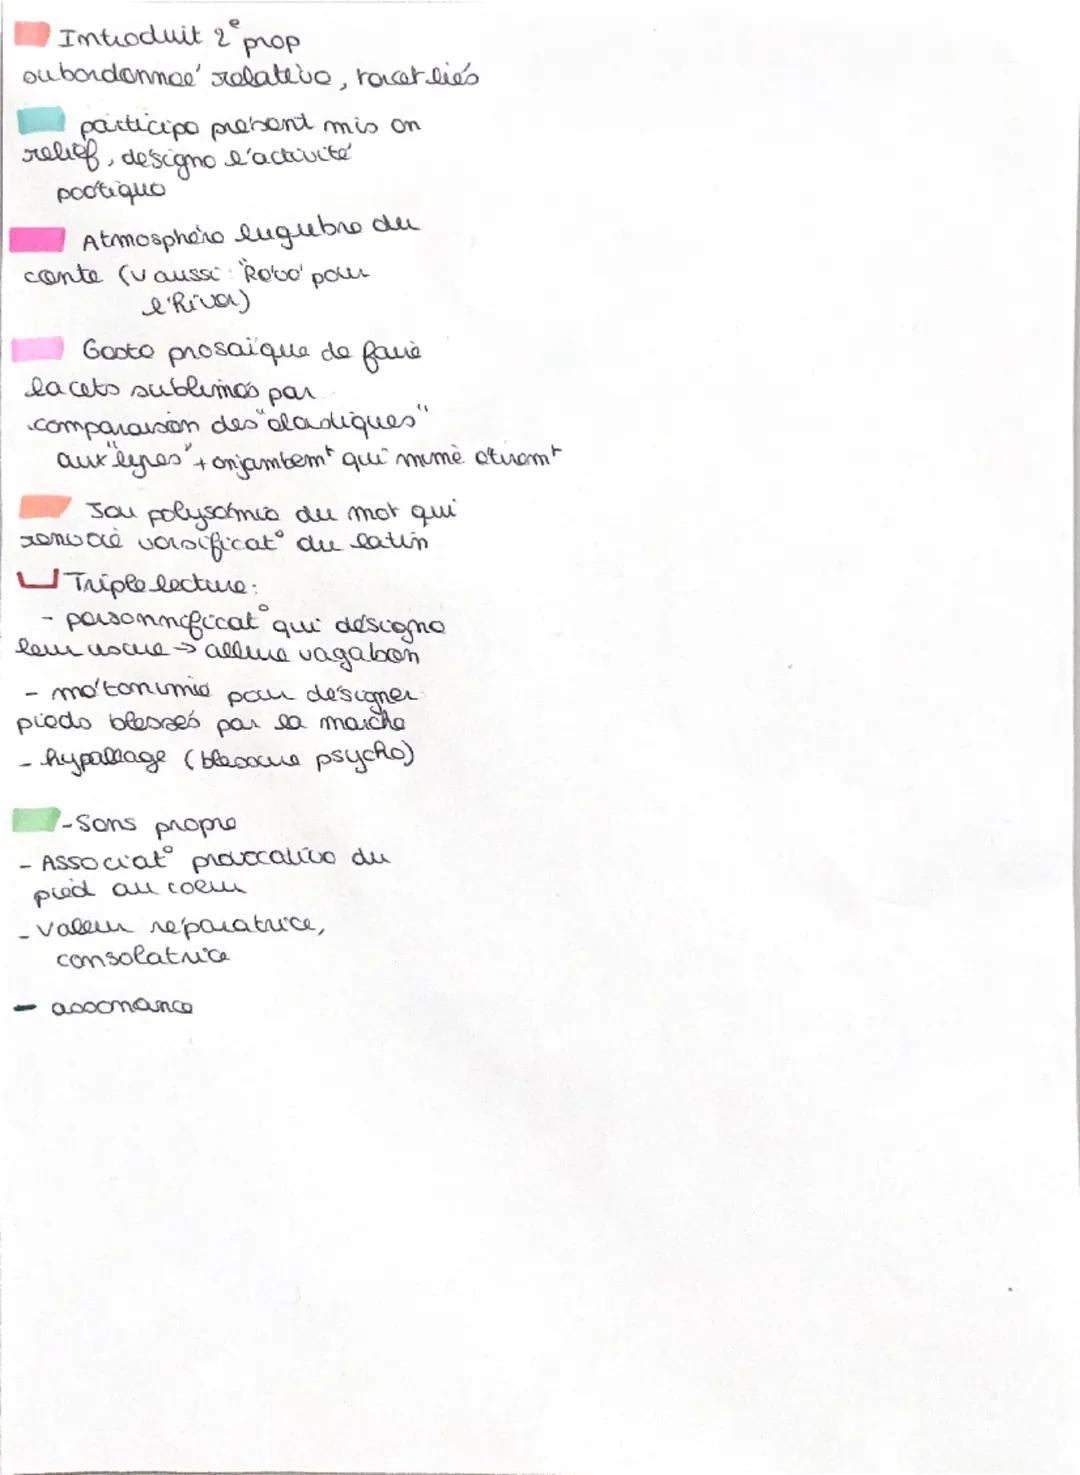 Introduit 2e prop
subordonnée relative, tercet liés
participe présent mis en
relief, désigne l'activité
poétique
Atmosphère lugubre du
conte (v aussi : "Rêve" pour
l'Hiver)
Geste prosaïque de faire
lacets sublimés par
comparaison des "élastiques"
aux "lyres" + enjambemt qui mime étiremt
Jeu polysémie du mot qui
renvoie versificat° du latin
Triple lecture :
- personnificat° qui désigne
leur usure → allure vagabon
- métonimie pour désigner
pieds blessés par la marche
- hypallage (blessure psycho)
- Sens propre
- Associat° provocative du
pied au coeur
- valeur réparatrice,
consolatrice
- assonance